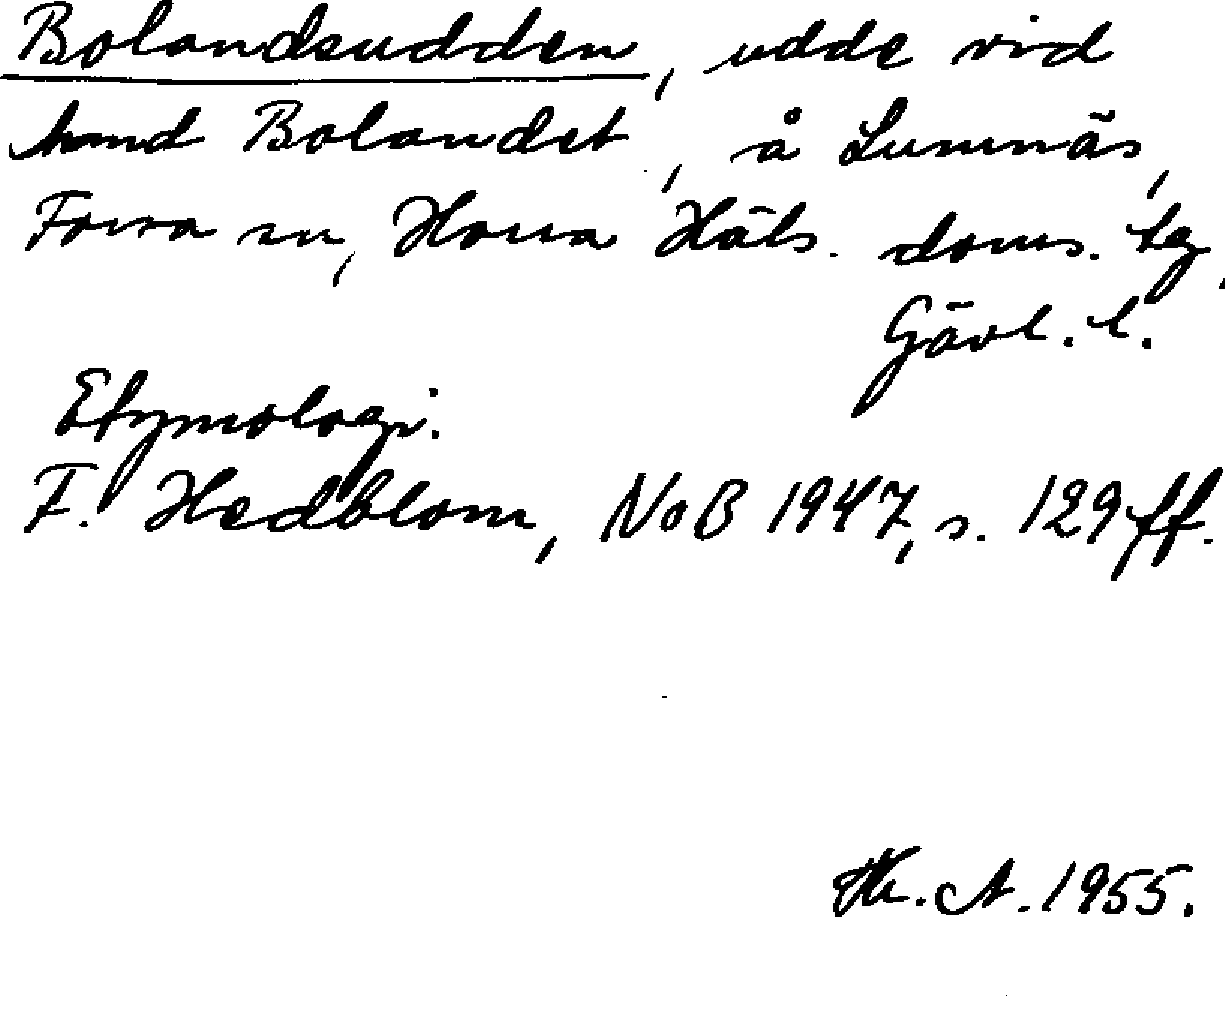 Bolandsudden, udde vid
hmd Bolandet, å Lumnäs,
Forsa sn, Norra Häls. doms. tg,
Gävl. l.
Etymologi.
F. Hedblom, NoB 1947, s. 129 ff.
Th. A. 1955.